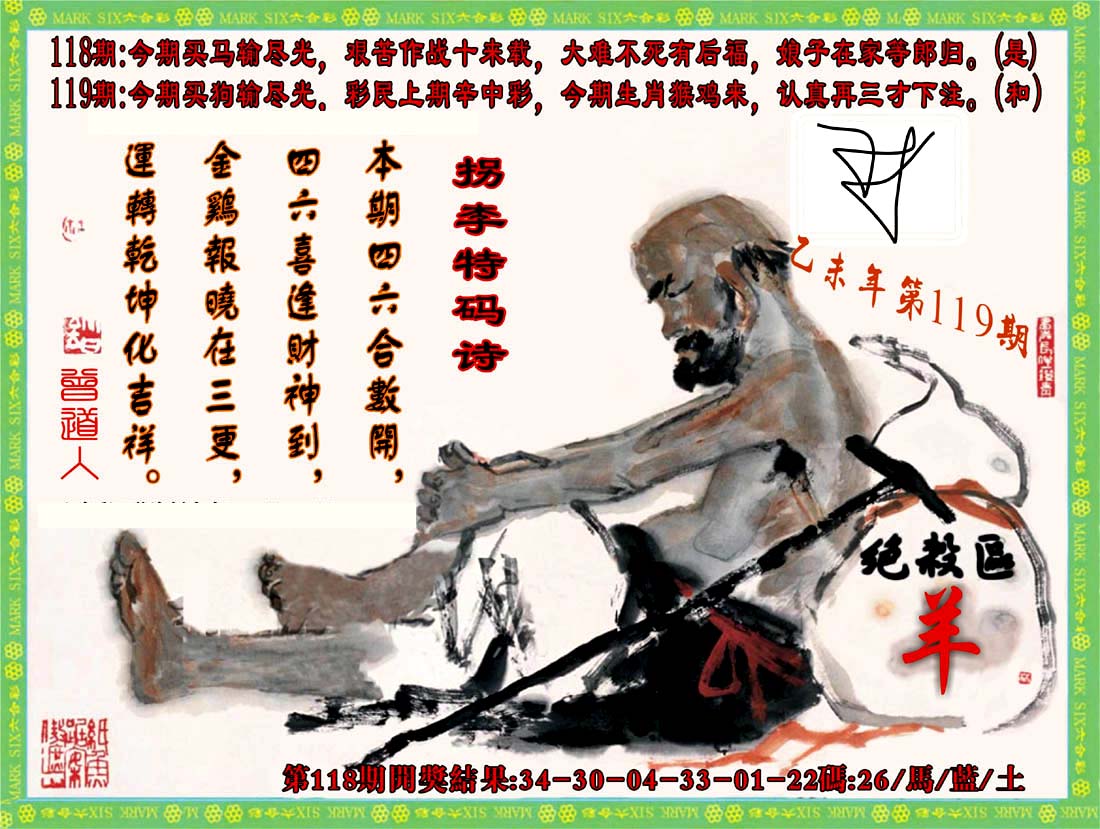 MARK SIX六合彩
118期:今期买马输尽光，艰苦作战十来载，大难不死有后福，娘子在家等郎归。(是)
119期:今期买狗输尽光．彩民上期幸中彩，今期生肖猴鸡来，认真再三才下注。(和)
拐李特码诗
本期四六合數開，
四六喜逢財神到，
金鷄報曉在三更，
運轉乾坤化吉祥。
曾道人
乙未年第119期
绝殺區
羊
第118期開獎結果:34-30-04-33-01-22碼:26/馬/藍/土